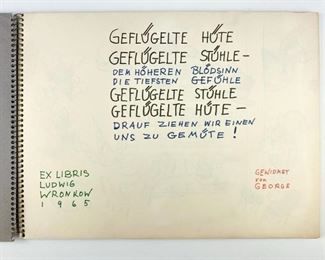 GEFLÜGELTE HÜTE
GEFLÜGELTE STÜHLE–
DEM HÖHEREN BLÖDSINN
DIE TIEFSTEN GEFÜHLE
GEFLÜGELTE STÜHLE
GEFLÜGELTE HÜTE–
DRAUF ZIEHEN WIR EINEN
UNS ZU GEMÜTE!
EX LIBRIS
LUDWIG
WRONKOW
1965
GEWIDMET
VON
GEORGE